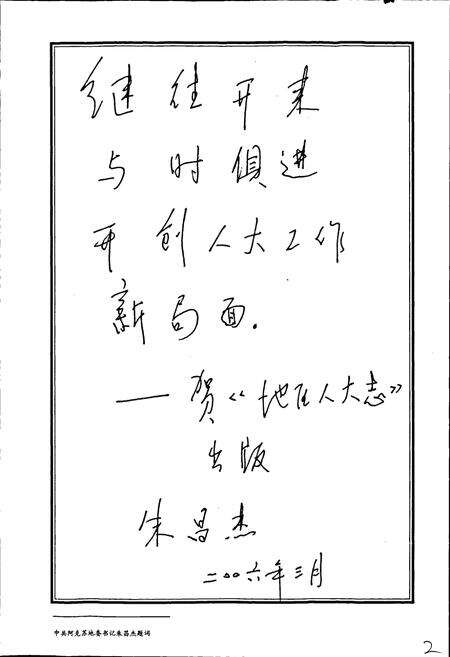 继往开来
与时俱进
开创人大工作
新局面.
——贺《地区人大志》
出版
朱昌杰
二〇〇六年三月
中共阿克苏地委书记朱昌杰题词
2